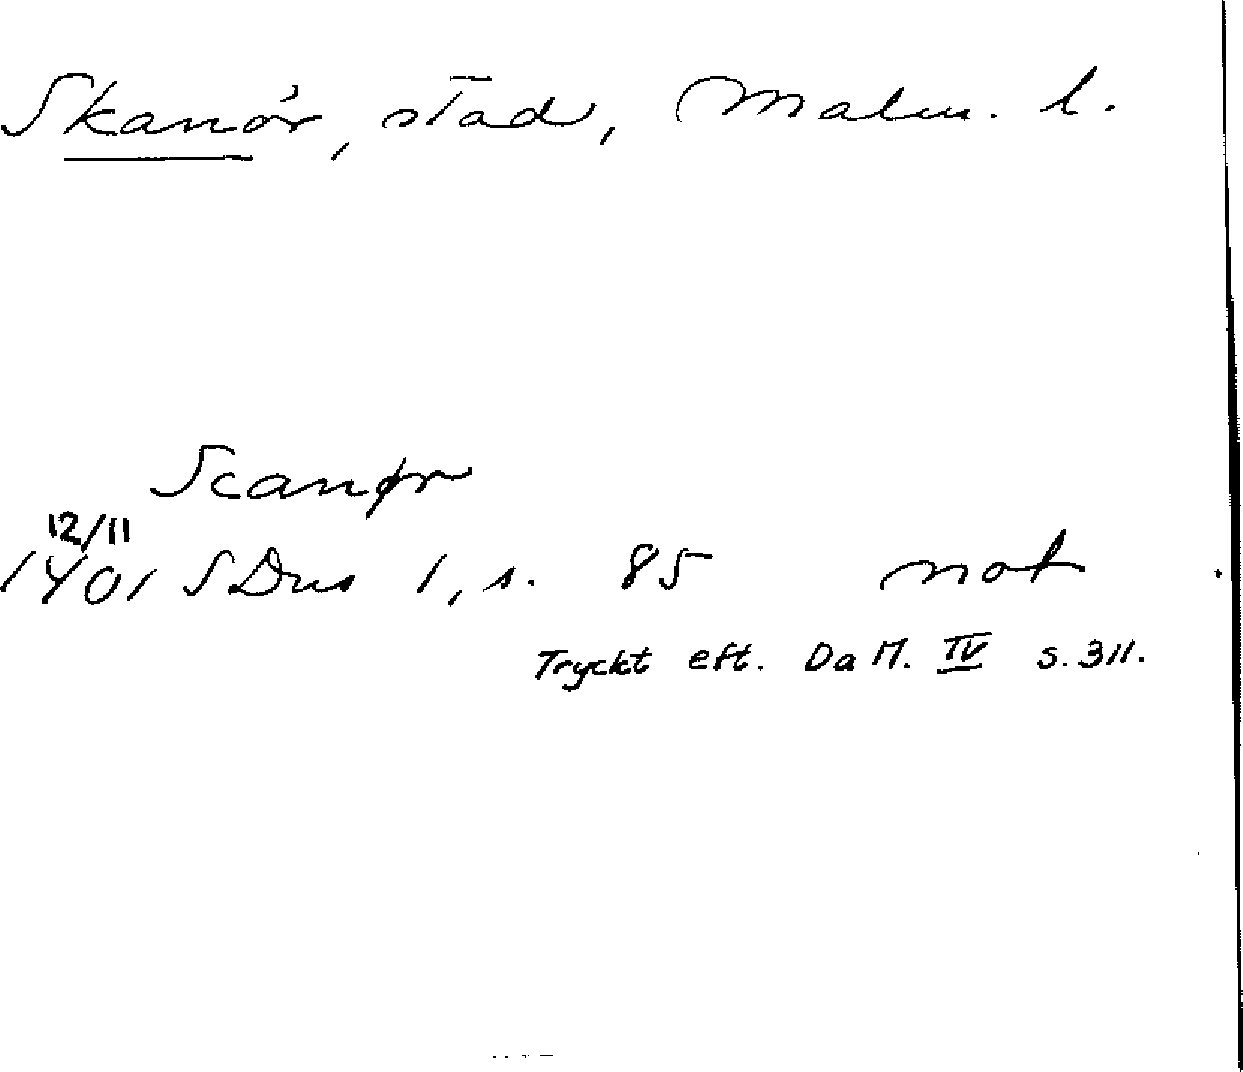 Skanör, stad, Malm. l.
Scanør
12/11
1401 SDns 1, s. 85 not
Tryckt eft. DaM. IV s. 311.